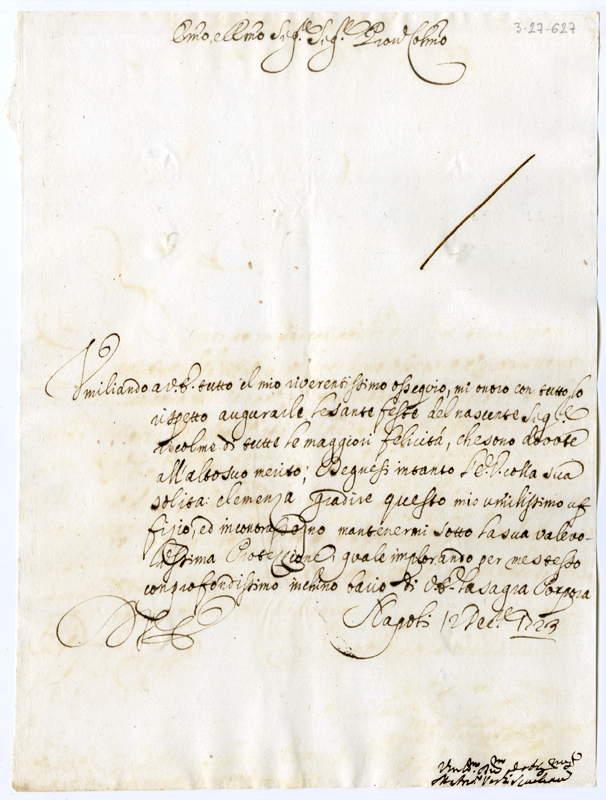 3-27-627
Emo, e Rmo Sigr. Sigr. Pron Colmo
Umiliando a V.E. tutto il mio riverentissimo ossequio, mi onoro con tutto lo
rispetto augurarle le sante feste del nascente Sigre
ricolme di tutte le maggiori felicità, che sono dovute
all'alto suo merito; Degnisi intanto l'E.V. colla sua
solita clemenza gradire questo mio umilissimo uf
fijio, ed in contrasegno mantenermi sotto la sua valevo-
lissima Protezzione, quale implorando per me stesso
con profondissimo inchino bacio di V.E. la Sagra Porpora
Napoli 12 Decre. 1723
D.V.E.